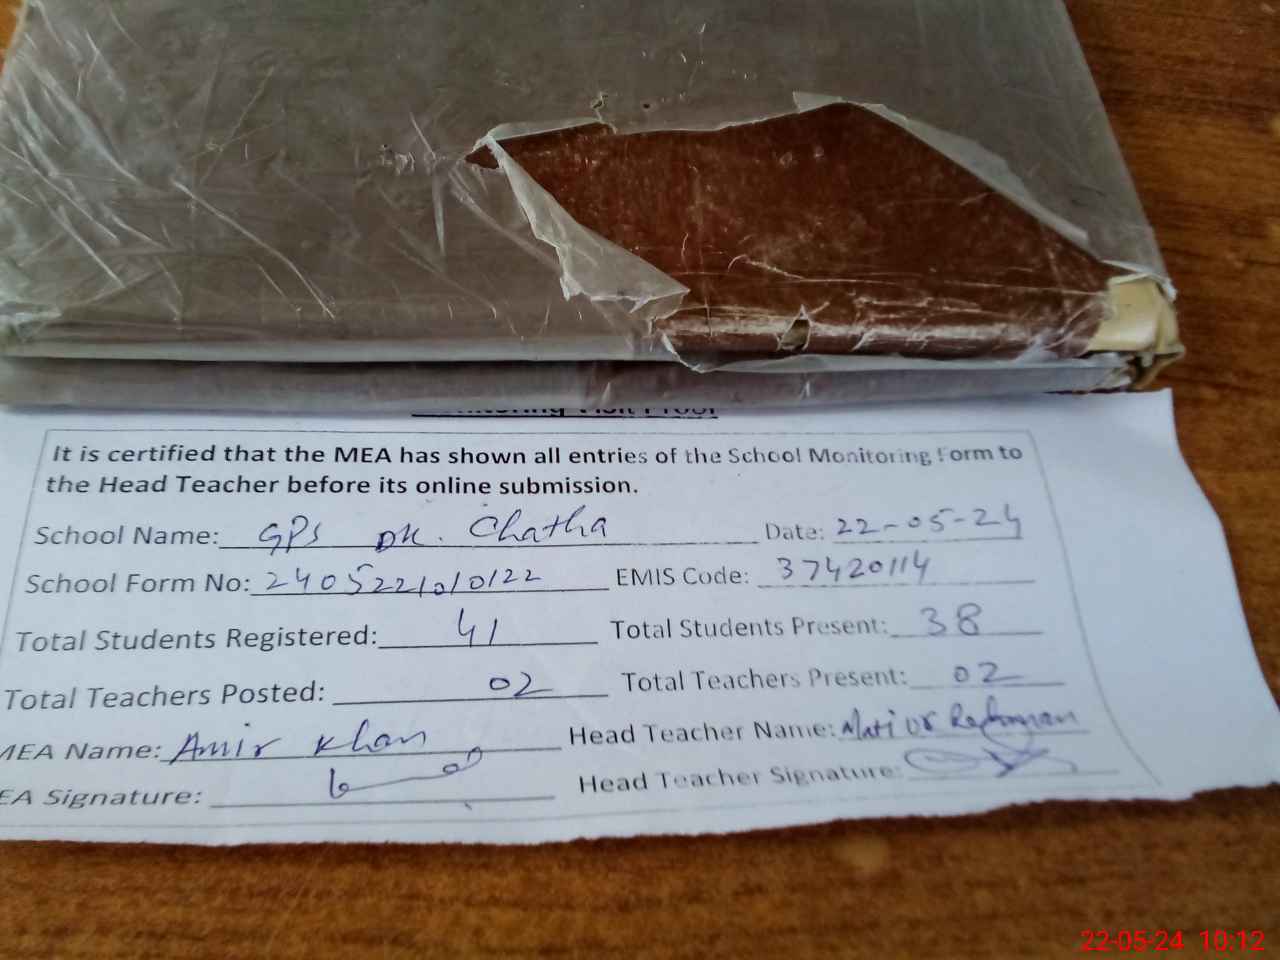 Monitoring Visit Proof
It is certified that the MEA has shown all entries of the School Monitoring Form to
the Head Teacher before its online submission.
School Name: GPS DK. Chatha Date: 22-05-24
School Form No: 24052210/0122 EMIS Code: 37420114
Total Students Registered: 41 Total Students Present: 38
Total Teachers Posted: 02 Total Teachers Present: 02
MEA Name: Amir Khan Head Teacher Name: Mati ur Rehman
EA Signature: Head Teacher Signature:
22-05-24 10:12